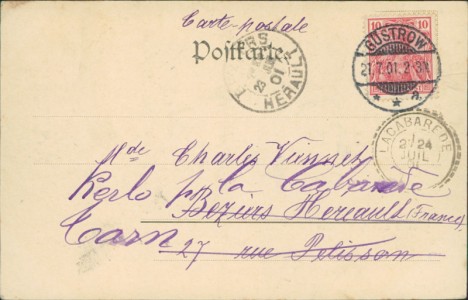 Carte-postale
Postkarte
10 10
GÜSTROW
21.7.01. 2-3N.
* * a.
RS
23
01
HERAULT
LACABAREDE
24
JUIL
Mde Charles
Kerlo pr La Cabarede
Beziers Hereault (France)
Tarn 27 rue Pelisson